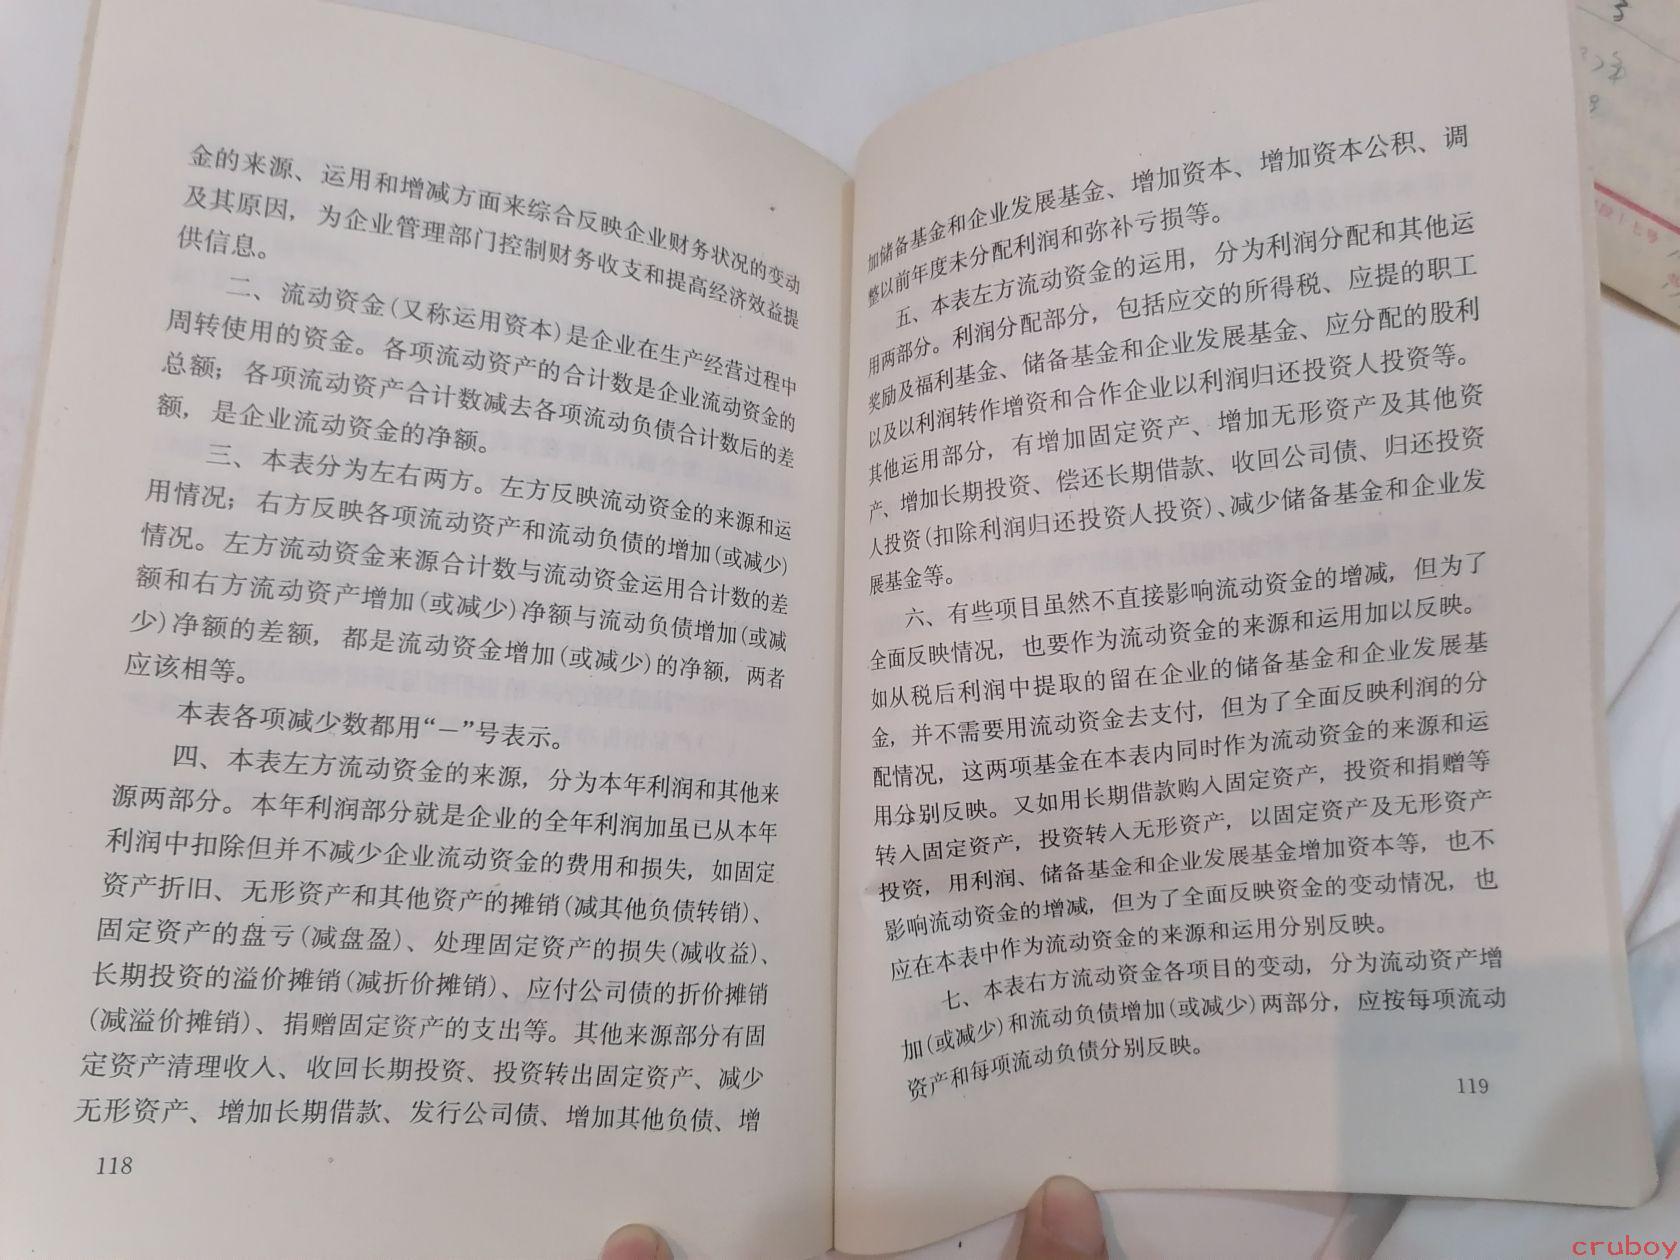 金的来源、运用和增减方面来综合反映企业财务状况的变动
及其原因，为企业管理部门控制财务收支和提高经济效益提
供信息。
二、流动资金(又称运用资本)是企业在生产经营过程中
周转使用的资金。各项流动资产的合计数是企业流动资金的
总额；各项流动资产合计数减去各项流动负债合计数后的差
额，是企业流动资金的净额。
三、本表分为左右两方。左方反映流动资金的来源和运
用情况；右方反映各项流动资产和流动负债的增加(或减少)
情况。左方流动资金来源合计数与流动资金运用合计数的差
额和右方流动资产增加(或减少)净额与流动负债增加(或减
少)净额的差额，都是流动资金增加(或减少)的净额，两者
应该相等。
本表各项减少数都用“－”号表示。
四、本表左方流动资金的来源，分为本年利润和其他来
源两部分。本年利润部分就是企业的全年利润加虽已从本年
利润中扣除但并不减少企业流动资金的费用和损失，如固定
资产折旧、无形资产和其他资产的摊销(减其他负债转销)、
固定资产的盘亏(减盘盈)、处理固定资产的损失(减收益)、
长期投资的溢价摊销(减折价摊销)、应付公司债的折价摊销
(减溢价摊销)、捐赠固定资产的支出等。其他来源部分有固
定资产清理收入、收回长期投资、投资转出固定资产、减少
无形资产、增加长期借款、发行公司债、增加其他负债、增
118
加储备基金和企业发展基金、增加资本、增加资本公积、调
整以前年度未分配利润和弥补亏损等。
五、本表左方流动资金的运用，分为利润分配和其他运
用两部分。利润分配部分，包括应交的所得税、应提的职工
奖励及福利基金、储备基金和企业发展基金、应分配的股利
以及以利润转作增资和合作企业以利润归还投资人投资等。
其他运用部分，有增加固定资产、增加无形资产及其他资
产、增加长期投资、偿还长期借款、收回公司债、归还投资
人投资(扣除利润归还投资人投资)、减少储备基金和企业发
展基金等。
六、有些项目虽然不直接影响流动资金的增减，但为了
全面反映情况，也要作为流动资金的来源和运用加以反映。
如从税后利润中提取的留在企业的储备基金和企业发展基
金，并不需要用流动资金去支付，但为了全面反映利润的分
配情况，这两项基金在本表内同时作为流动资金的来源和运
用分别反映。又如用长期借款购入固定资产，投资和捐赠等
转入固定资产，投资转入无形资产，以固定资产及无形资产
投资，用利润、储备基金和企业发展基金增加资本等，也不
影响流动资金的增减，但为了全面反映资金的变动情况，也
应在本表中作为流动资金的来源和运用分别反映。
七、本表右方流动资金各项目的变动，分为流动资产增
加(或减少)和流动负债增加(或减少)两部分，应按每项流动
资产和每项流动负债分别反映。
119
cruboy